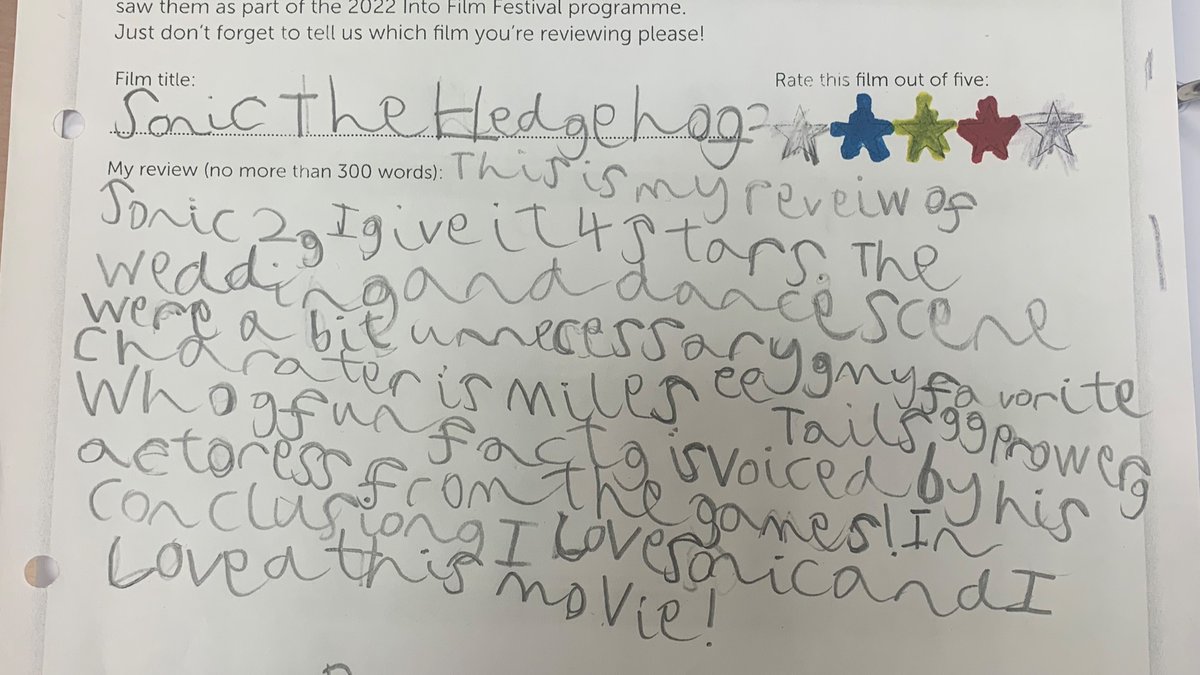 saw them as part of the 2022 Into Film Festival programme.
Just don't forget to tell us which film you're reviewing please!
Film title:
Rate this film out of five:
Sonic The Hedgehog 2
My review (no more than 300 words): This is my reveiw of
Sonic 2, I give it 4 stars. The
wedding and dance scene
were a bit unnecessary, my favorite
charater is Miles "Tails" Prower,
who, fun fact, is voiced by his
actoress from the games! In
conclusion, I Love sonic and I
Loved this movie!